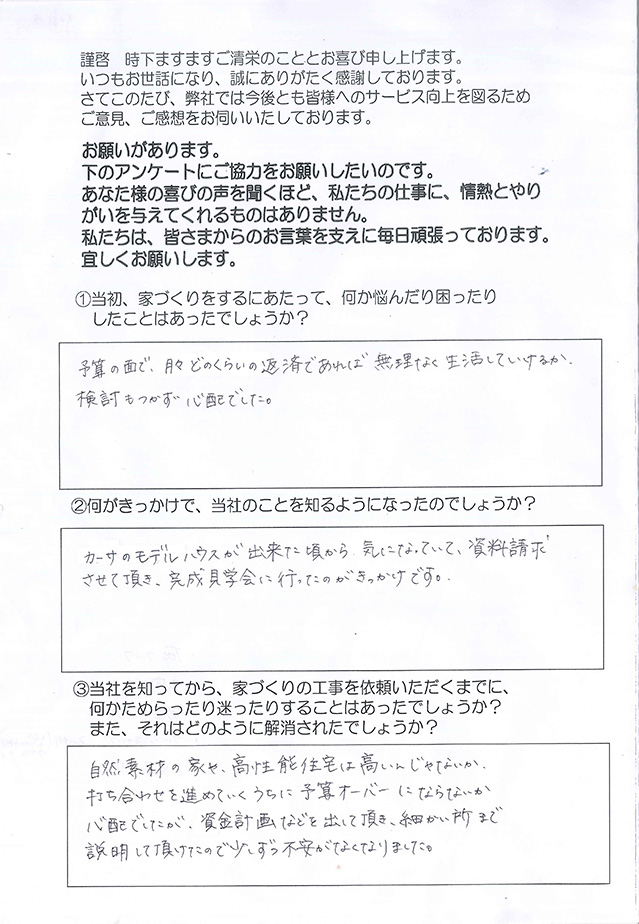 謹啓　時下ますますご清栄のこととお喜び申し上げます。
いつもお世話になり、誠にありがたく感謝しております。
さてこのたび、弊社では今後とも皆様へのサービス向上を図るため
ご意見、ご感想をお伺いいたしております。
お願いがあります。
下のアンケートにご協力をお願いしたいのです。
あなた様の喜びの声を聞くほど、私たちの仕事に、情熱とやり
がいを与えてくれるものはありません。
私たちは、皆さまからのお言葉を支えに毎日頑張っております。
宜しくお願いします。
①当初、家づくりをするにあたって、何か悩んだり困ったり
したことはあったでしょうか？
予算の面で、月々どのくらいの返済であれば無理なく生活していけるか、
検討もつかず心配でした。
②何がきっかけで、当社のことを知るようになったのでしょうか？
カーサのモデルハウスが出来た頃から気になっていて、資料請求
させて頂き、完成見学会に行ったのがきっかけです。
③当社を知ってから、家づくりの工事を依頼いただくまでに、
何かためらったり迷ったりすることはあったでしょうか？
また、それはどのように解消されたでしょうか？
自然素材の家や、高性能住宅は高いんじゃないか、
打ち合わせを進めていくうちに予算オーバーにならないか
心配でしたが、資金計画などを出して頂き、細かい所まで
説明して頂けたので少しずつ不安がなくなりました。